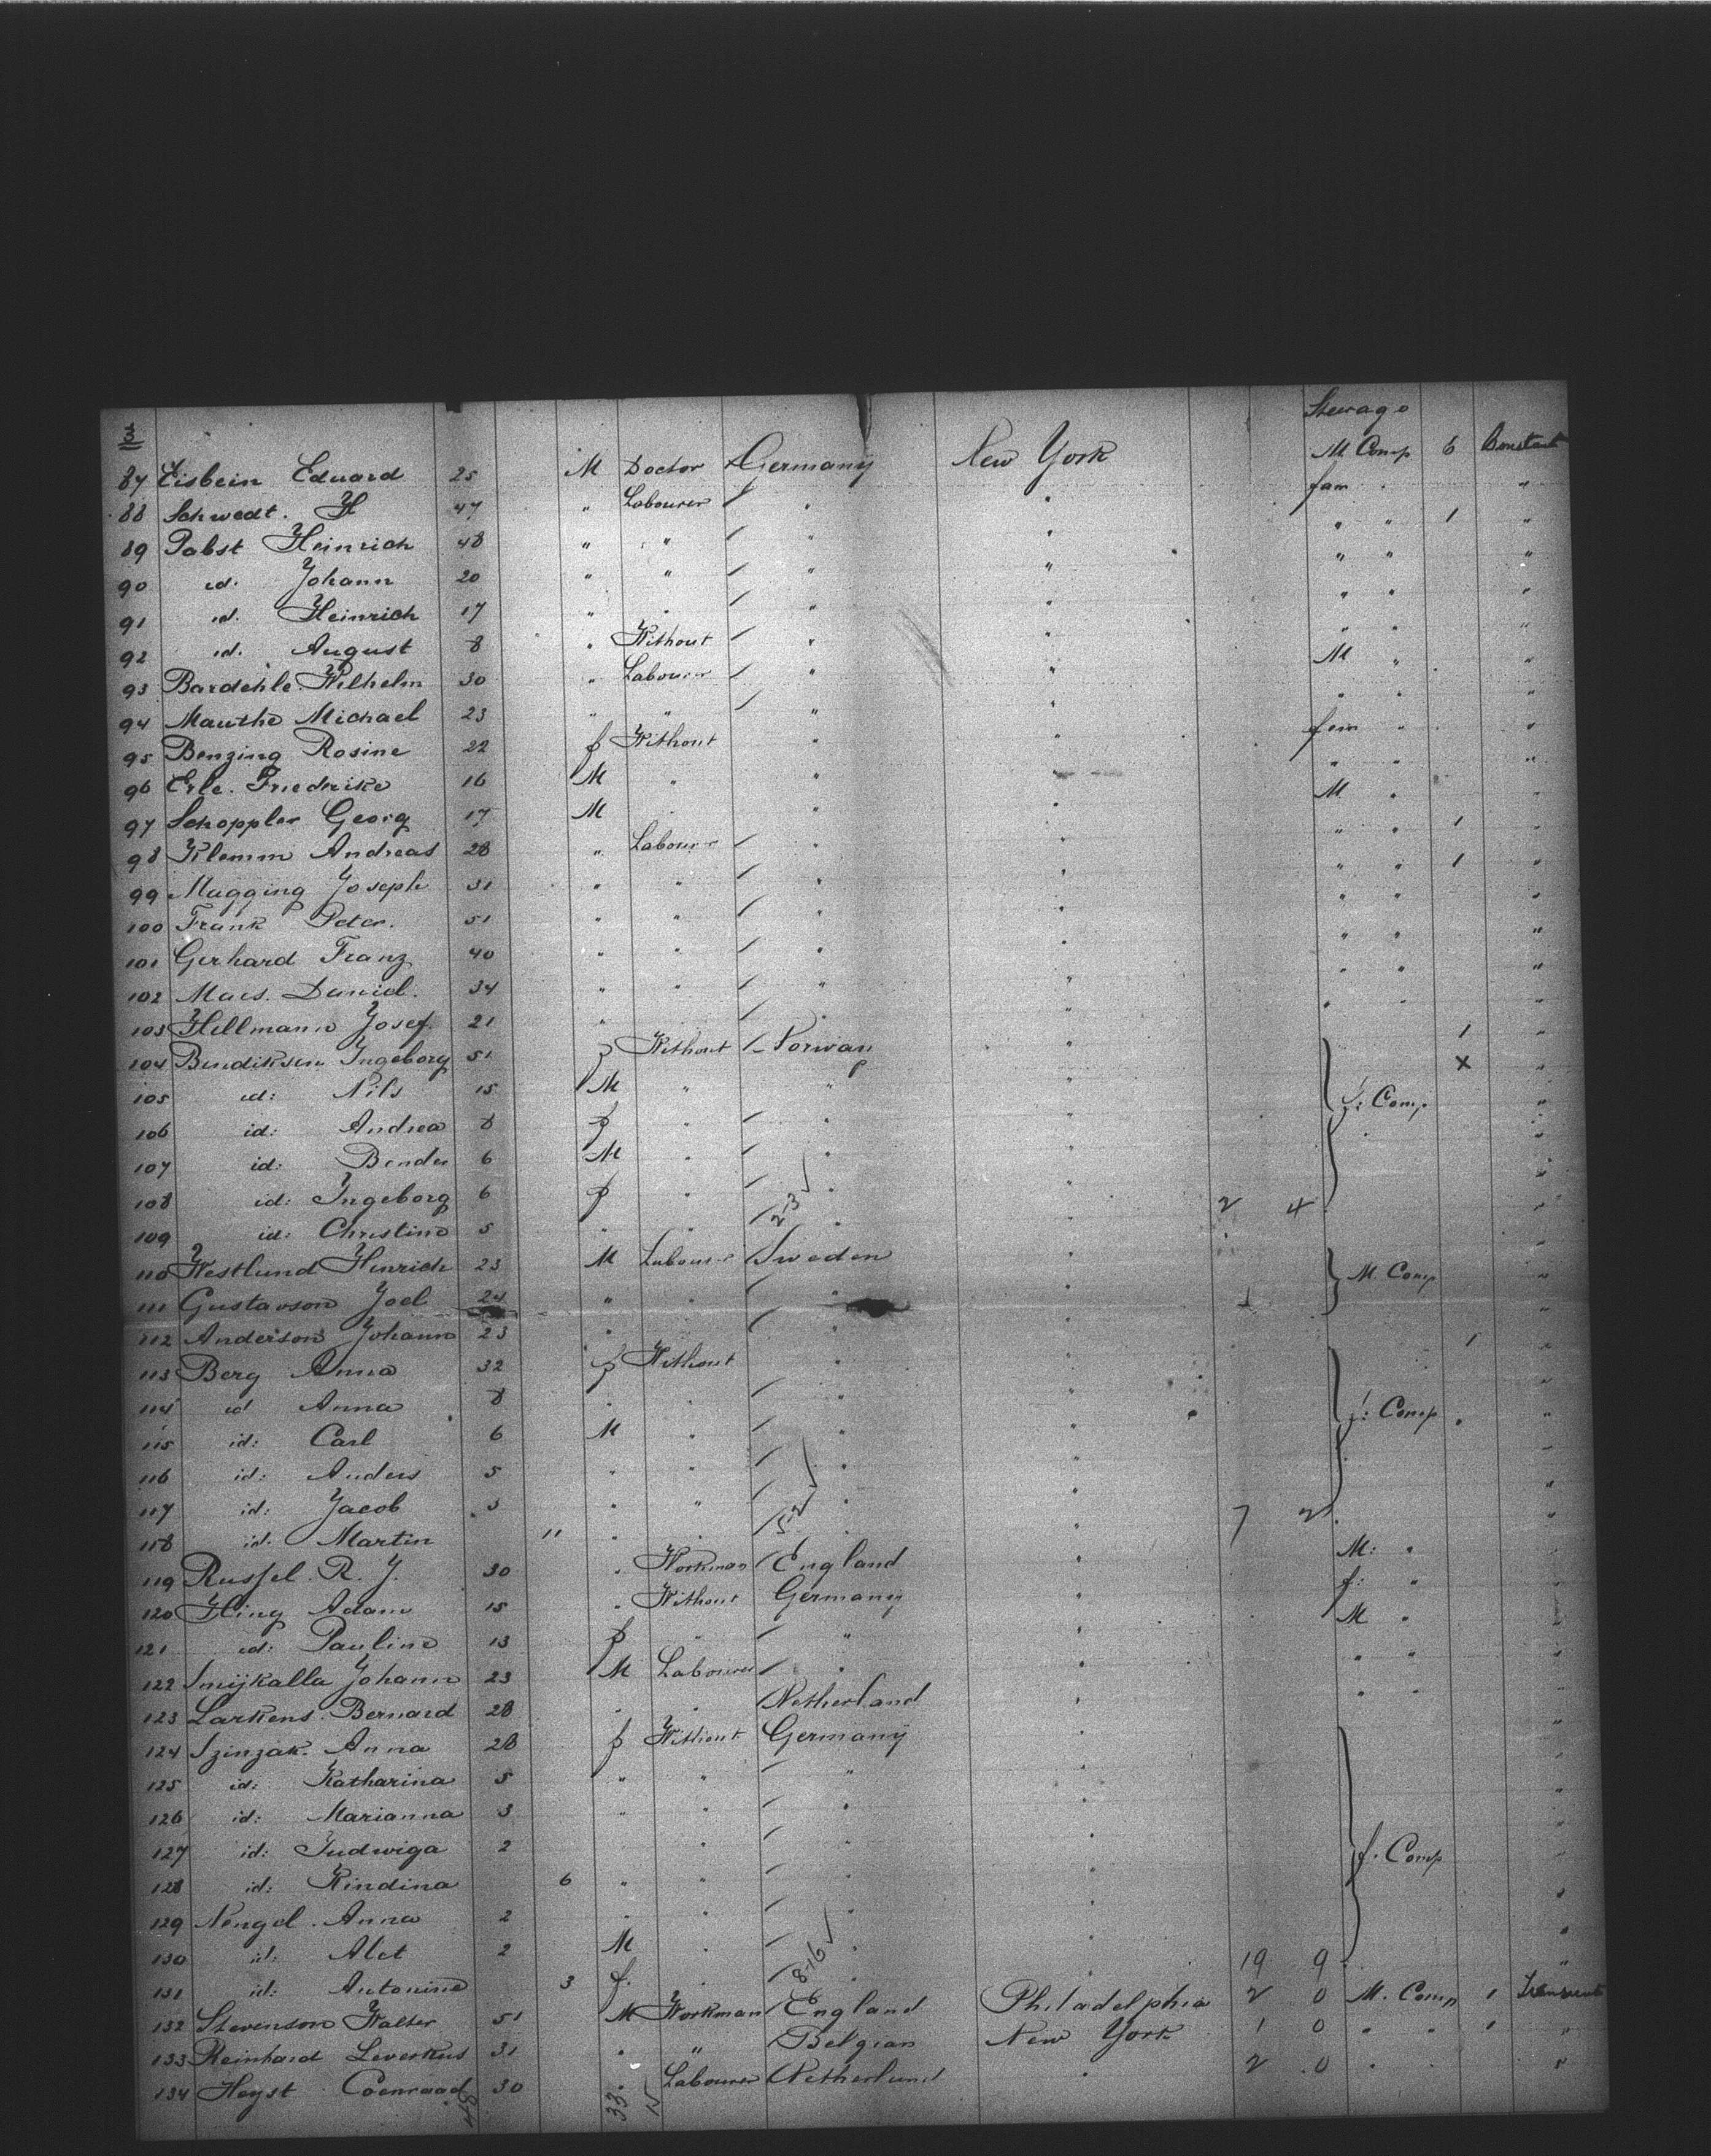 3 Steerage
87 Eisbein Eduard 25 M Doctor Germany New York M Comp 6 Constant
88 Schwedt. H 47 " Labourer / " " fam " "
89 Pabst Heinrich 48 " " / " " " " 1 "
90 id. Johann 20 " " / " " " " "
91 id. Heinrich 17 " " / " " " " "
92 id. August 8 " Without / " " " " "
93 Bardehle Wilhelm 30 " Labourer / " " M " "
94 Mauthe Michael 23 " " / " " " " "
95 Benzing Rosine 22 f Without " " fem " "
96 Erle. Friedrike 16 M " " " " " "
97 Schoppler Georg 17 M " " " M " "
98 Klemm Andreas 28 " Labourer / " " " " 1 "
99 Mugging Joseph 31 " " / " " " " 1 "
100 Frank Peter. 51 " " / " " " " "
101 Gerhard Franz 40 " " / " " " " "
102 Mars. Daniel. 34 " " / " " " " "
103 Hillmann Josef. 21 " / " " " " "
104 Bendiksen Ingeborg 51 f Without / Norway " 1 "
105 id: Nils 15 M " " " X "
106 id: Andrea 8 f " / " " f: Comp "
107 id: Bender 6 M " / " " "
108 id: Ingeborg 6 f " / " " "
109 id: Christine 5 " " / 23 " " 2 4 "
110 Westlund Hinrich 23 M Labourer Sweden " "
111 Gustavson Joel 24 " " / " " M Comp "
112 Anderson Johann 23 " / " "
113 Berg Anna 32 f Without " " 1 "
114 id Anna 8 " " / " " "
115 id: Carl 6 M " / " " f: Comp "
116 id: Anders 5 " " / " " "
117 id: Jacob 3 " " / " " "
118 id: Martin 11 " " / 52 " " 7 2 "
119 Russel. R. J. 30 " Workman / England " M: "
120 Hing Adam 15 " Without Germany " f: " "
121 id: Pauline 13 f " / " " M " "
122 Smijkalla Johann 23 M Labourer / " " " " "
123 Larkens. Bernard 28 " " Netherland " " " "
124 Szinzak. Anna 28 f Without Germany " "
125 id: Katharina 5 " " / " " "
126 id: Marianna 3 " " / " " "
127 id: Judwiga 2 " / " "
128 id: Kindina 6 " " / " " f. Comp "
129 Nengel. Anna 2 " " / " " "
130 id: Alet 2 M " / " " "
131 id: Antonine 3 f. " / 816 " " 19 9 "
132 Stevenson Walter 51 M Workman England Philadelphia 2 0 M. Comp 1 Transient
133 Reinhard Leverkus 31 " " Belgian New York 1 0 " " 1 "
134 Heyst Coenraad 30 " Labourer Netherland " 2 0 " "
33